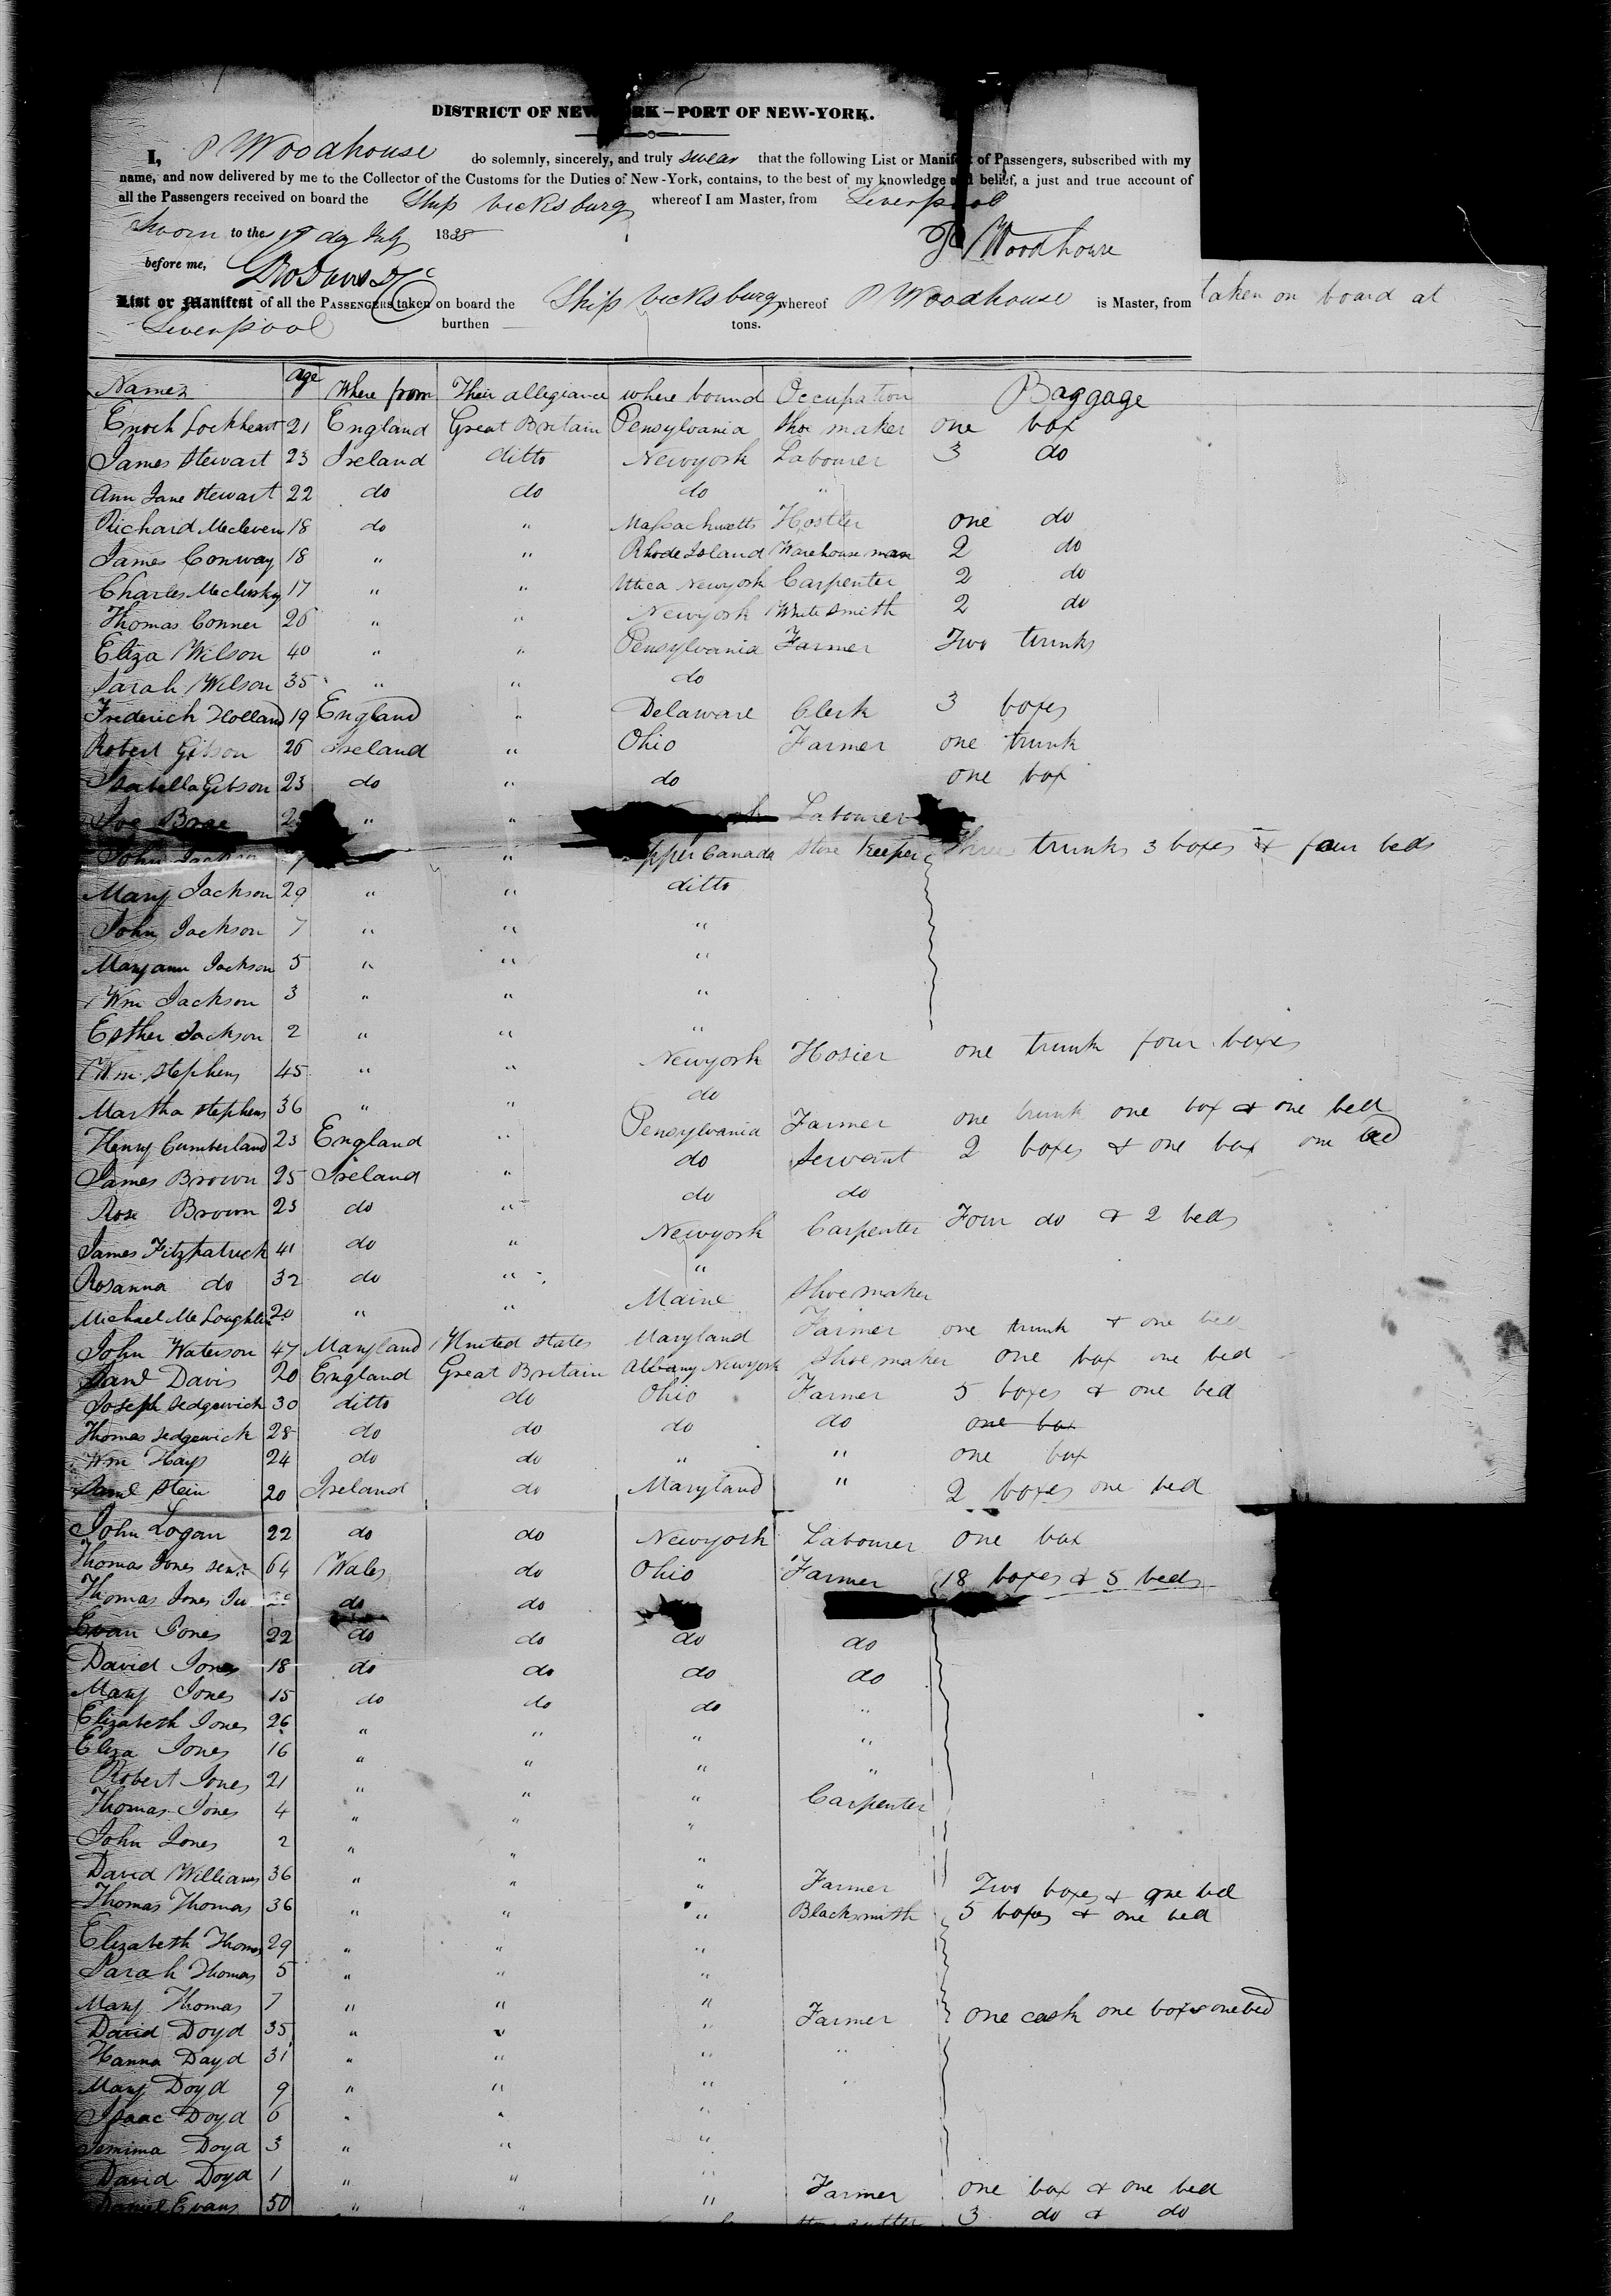 DISTRICT OF NEW RK – PORT OF NEW-YORK.
I, P Woodhouse do solemnly, sincerely, and truly swear that the following List or Manifest of Passengers, subscribed with my
name, and now delivered by me to the Collector of the Customs for the Duties of New-York, contains, to the best of my knowledge and belief, a just and true account of
all the Passengers received on board the Ship Vicksburg whereof I am Master, from Liverpool
Sworn to the 19 day July 1838 P Woodhouse
before me,
List or Manifest of all the PASSENGERS taken on board the Ship Vicksburg whereof P Woodhouse is Master, from taken on board at
Liverpool burthen tons.
Names age Where from Their allegiance where bound Occupation Baggage
Enoch Lockheart 21 England Great Britain Pensylvania Shoe maker one box
James Stewart 23 Ireland ditto Newyork Labourer 3 do
Ann Jane Stewart 22 do do do "
Richard Mecleven 18 do " Massachusetts Hostler one do
James Conway 18 " " Rhode Island Warehouse man 2 do
Charles Meclusky 17 " " Utica Newyork Carpenter 2 do
Thomas Conner 26 " " Newyork White Smith 2 do
Eliza Wilson 40 " " Pensylvania Farmer Two trunks
Sarah Wilson 35 " " do
Frederick Holland 19 England " Delaware Clerk 3 boxes
Robert Gibson 26 Ireland " Ohio Farmer one trunk
Isabella Gibson 23 do " do one box
" " Labourer
John Jackson " pper Canada Store Keeper Three trunks 3 boxes & four beds
Mary Jackson 29 " " ditto
John Jackson 7 " " "
Maryann Jackson 5 " " "
Wm Jackson 3 " " "
Esther Jackson 2 " " "
Wm Stephens 45 " " Newyork Hosier one trunk four boxes
Martha Stephens 36 " " do
Henry Cumberland 23 England " Pensylvania Farmer one trunk one box & one bed
James Brown 25 Ireland " do Servant 2 boxes & one box one bed
Rose Brown 23 do " do do
James Fitzpatrick 41 do " Newyork Carpenter Four do & 2 beds
Rosanna do 32 do " "
Michael McLoughlin 20 " " Maine Shoemaker
John Waterson 47 Maryland United States Maryland Farmer one trunk & one bed
Saml Davis 20 England Great Britain Albany Newyork Shoemaker one box one bed
Joseph Sedgewick 30 ditto do Ohio Farmer 5 boxes & one bed
Thomas Sedgewick 28 do do do do one box
Wm Hays 24 do do " " one box
Saml Stein 20 Ireland do Maryland " 2 boxes one bed
John Logan 22 do do Newyork Labourer one box
Thomas Jones Senr 64 Wales do Ohio Farmer 18 boxes & 5 beds
Thomas Jones Ju do do
Evan Jones 22 do do do do
David Jones 18 do do do do
Mary Jones 15 do do do "
Elizabeth Jones 26 " " " "
Eliza Jones 16 " " " "
Robert Jones 21 " " " Carpenter
Thomas Jones 4 " " "
John Jones 2 " " "
David Williams 36 " " " Farmer Two boxes & one bed
Thomas Thomas 36 " " " Blacksmith 5 boxes & one bed
Elizabeth Thomas 29 " " "
Sarah Thomas 5 " " "
Mary Thomas 7 " " "
David Doyd 35 " " " Farmer one cask one box & one bed
Hanna Doyd 31 " " " "
Mary Doyd 9 " " " "
Isaac Doyd 6 " " "
Jemima Doyd 3 " " "
David Doyd 1 " " "
Daniel Evans 50 " " " Farmer one box & one bed
3 do & do